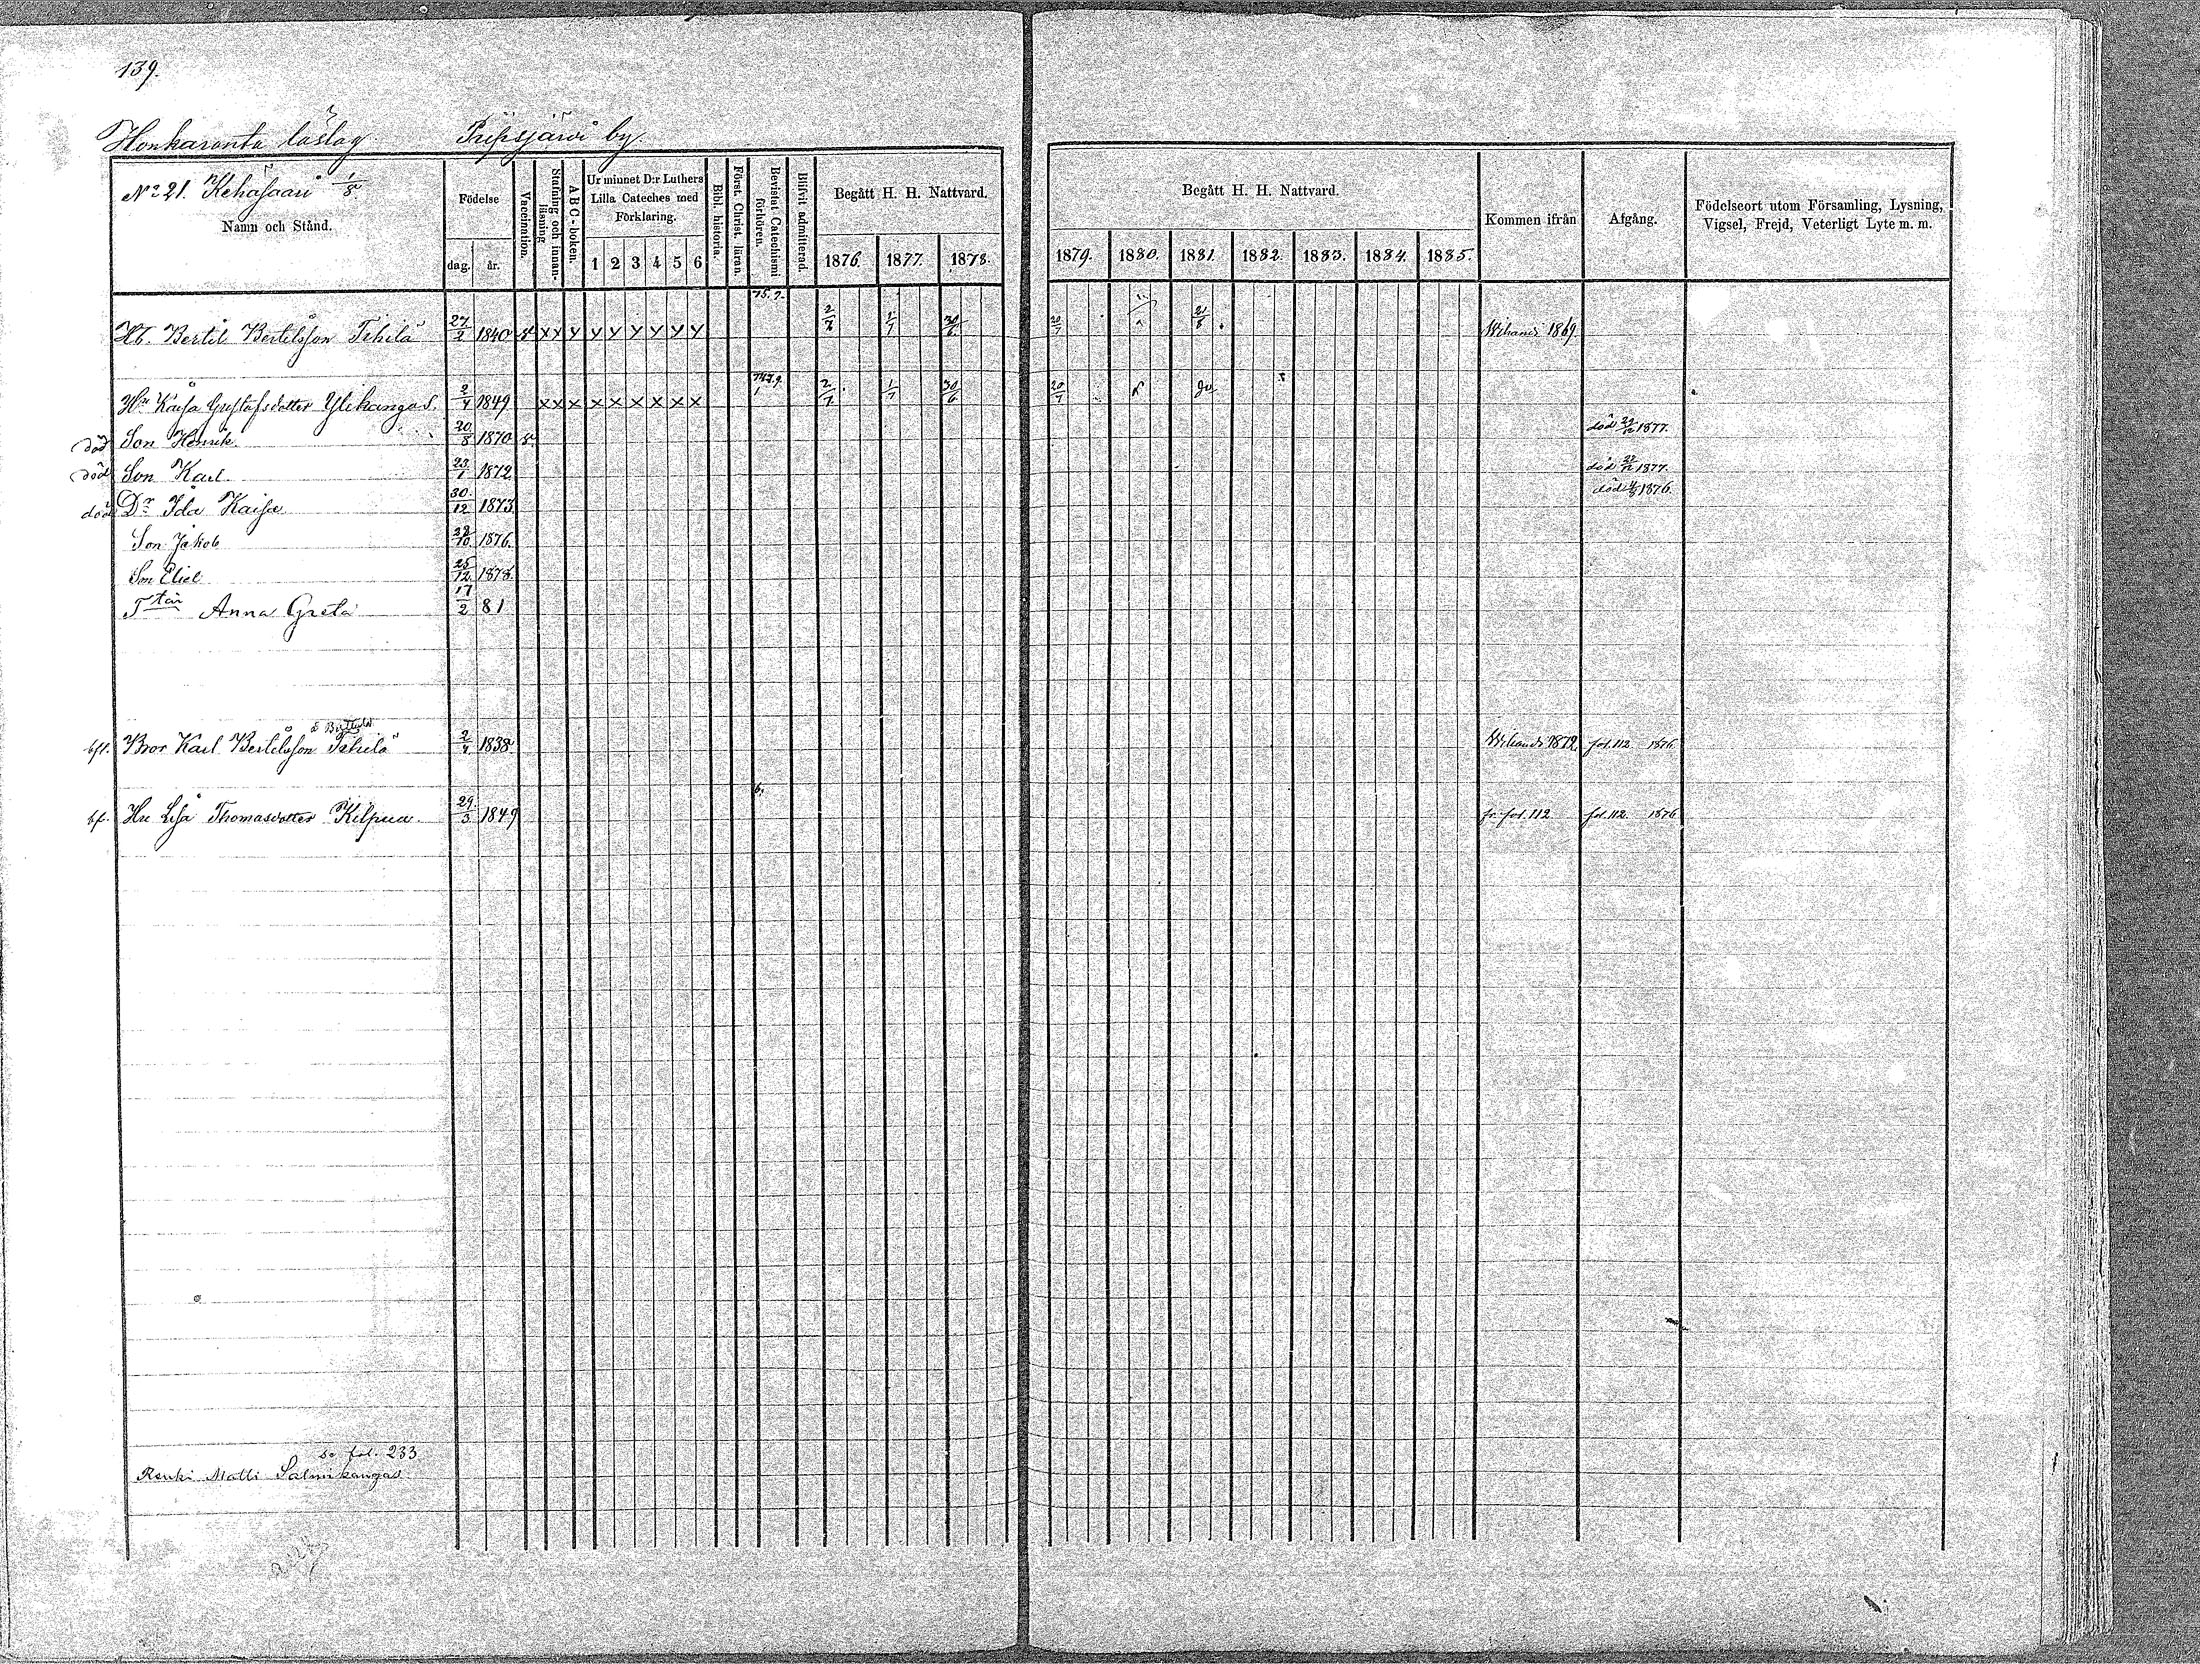 139.
Honkaranta läslag. Pipsjärvi by.
No 21. Kehäsaari 1/8.
Namn och Stånd.
Födelse
dag. år.
Vaccination.
Stafning och innan-läsning
ABC-boken.
Ur minnet D:r Luthers Lilla Cateches med Förklaring.
1 2 3 4 5 6
Bibl. historia.
Först. Christ. läran.
Bevistat Catechismi förhören.
Blifvit admitterad.
Begått H. H. Nattvard.
1876. 1877. 1878.
Begått H. H. Nattvard.
1879. 1880. 1881. 1882. 1883. 1884. 1885.
Kommen ifrån
Afgång.
Födelseort utom Församling, Lysning, Vigsel, Frejd, Veterligt Lyte m. m.
Bertil Bertilsson Tihilä 27/2 1840 x x y y y y y y y 1/7 30/6 20/7 21/8 Wihandi 1869.
Hu Kaisa Gustafsdotter Ylikangas. 2/4 1849 x x x x x x x x x 2/7 1/7 30/6 20/7
död Son Henrik 20/8 1870 död 1877.
död Son Karl 23/1 1872 död 1877.
död Dr Ida Kaisa 30/12 1873 död 1876.
Son Jakob 28/10 1876.
Son Eliel 25/12 1878.
Ttär Anna Greta 17/2 81
bft. Bror Karl Bertilsson Tihilä 2/4 1838 Wihandi 1872 fol. 112 1876
bf. Hu Lisa Thomasdotter Kilpua 29/3 1849 fr. fol. 112 fol. 112 1876
se fol. 233
Renki Matti Salmikangas